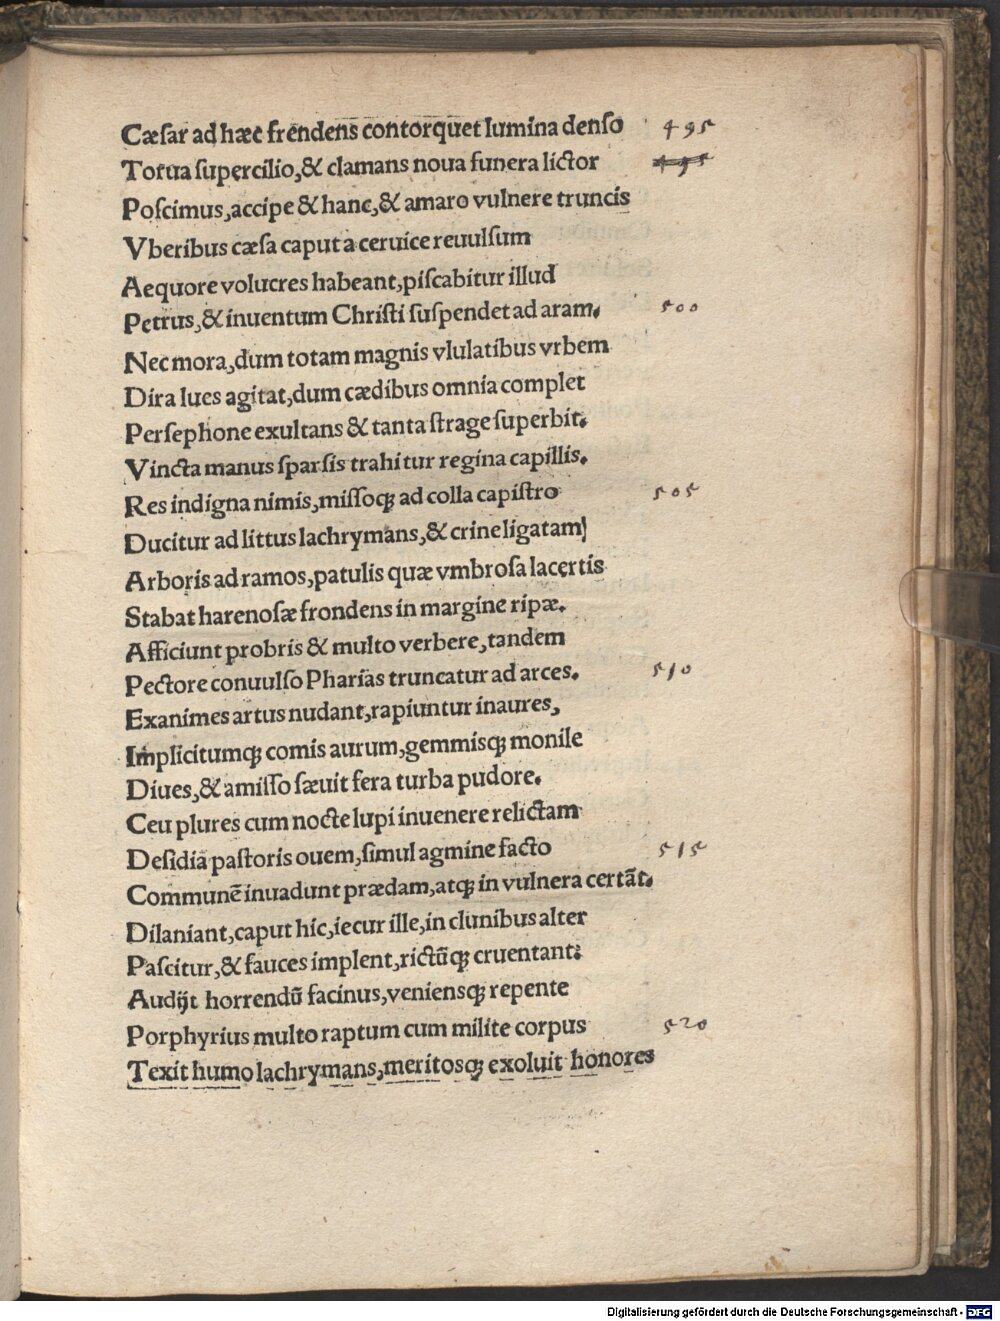 Cæſar ad hæc frendens contorquet lumina denſo 495
Torua ſupercilio,& clamans noua funera lictor 495
Poſcimus,accipe & hanc,& amaro vulnere truncis
Vberibus cæſa caput a ceruice reuulſum
Aequore volucres habeant,piſcabitur illud
Petrus,& inuentum Chriſti ſuſpendet ad aram. 500
Nec mora,dum totam magnis vlulatibus vrbem
Dira lues agitat,dum cædibus omnia complet
Perſephone exultans & tanta ſtrage ſuperbit.
Vincta manus ſparſis trahitur regina capillis.
Res indigna nimis,miſſoqꝫ ad colla capiſtro 505
Ducitur ad littus lachrymans,& crine ligatam
Arboris ad ramos,patulis quæ vmbroſa lacertis
Stabat harenoſæ frondens in margine ripæ.
Afficiunt probris & multo verbere,tandem
Pectore conuulſo Pharias truncatur ad arces. 510
Exanimes artus nudant,rapiuntur inaures,
Implicitumqꝫ comis aurum,gemmisqꝫ monile
Diues,& amiſſo ſæuit fera turba pudore.
Ceu plures cum nocte lupi inuenere relictam
Deſidia paſtoris ouem,ſimul agmine facto 515
Communē inuadunt prædam,atqꝫ in vulnera certāt.
Dilaniant,caput hic,iecur ille,in clunibus alter
Paſcitur,& fauces implent,rictūqꝫ cruentant.
Audijt horrendū facinus,veniensqꝫ repente
Porphyrius multo raptum cum milite corpus 520
Texit humo lachrymans,meritosqꝫ exoluit honores
Digitalisierung gefördert durch die Deutsche Forschungsgemeinschaft - DFG